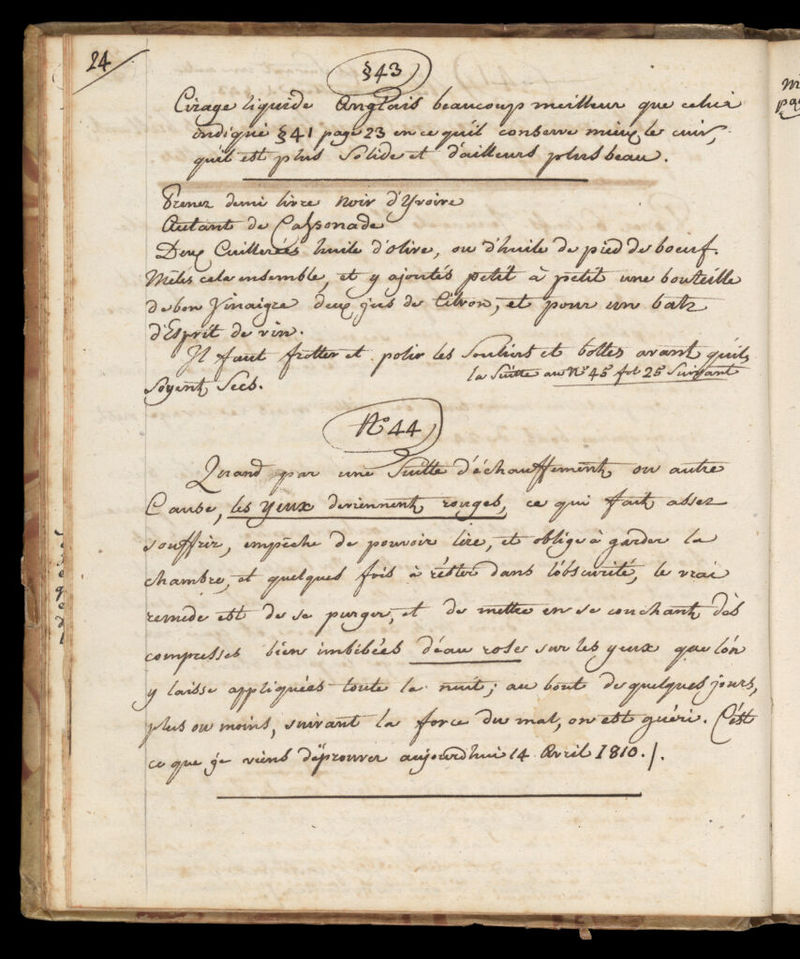 24
§43
Cirage liquide Anglais beaucoup meilleur que celui
indiqué §41 page 23 en ce qu'il conserve mieux le cuir,
qu'il est plus Solide et d'ailleurs plus beau.
Prenez demi livre Noir d'Yvoire
Autant de Cassonade
Deux Cuillerées huile d'olive, ou d'huile de pied de boeuf.
Mêlés cela ensemble, et y ajoutés petit à petit une bouteille
de bon Vinaigre deux jus de Citron, et pour un batz
d'Esprit de vin.
Il faut frotter et polir les Souliers et bottes avant qu'ils
soyent Secs.
la Suitte au N° 45 fol 25 Suivant
N° 44
Quand par une Suitte d'échauffement, ou autre
Cause, les yeux deviennent rouges, ce qui fait assez
souffrir, empêche de pouvoir lire, et oblige à garder la
chambre, et quelques fois à rester dans l'obscurité, le vrai
remede est de se purger, et de mettre en se couchant, dès
compresses bien imbibées d'éau rose sur les yeux que l'on
y laisse appliquées toute la nuit; au bout de quelques jours,
plus ou moins, suivant la force du mal, on est guéri. C'est
ce que je viens d'éprouver aujourdhui 14 Avril 1810./.